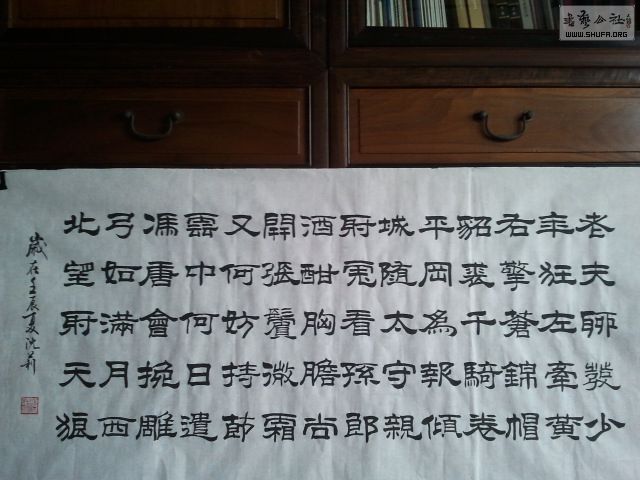 老夫聊發少
年狂左牽黄
右擎蒼錦帽
貂裘千騎卷
平岡為報傾
城随太守親
射虎看孫郎
酒酣胸膽尚
開張鬢微霜
又何妨持節
雲中何日遣
馮唐會挽雕
弓如滿月西
北望射天狼
歲在壬辰夏沈莉
書藝公社
WWW.SHUFA.ORG